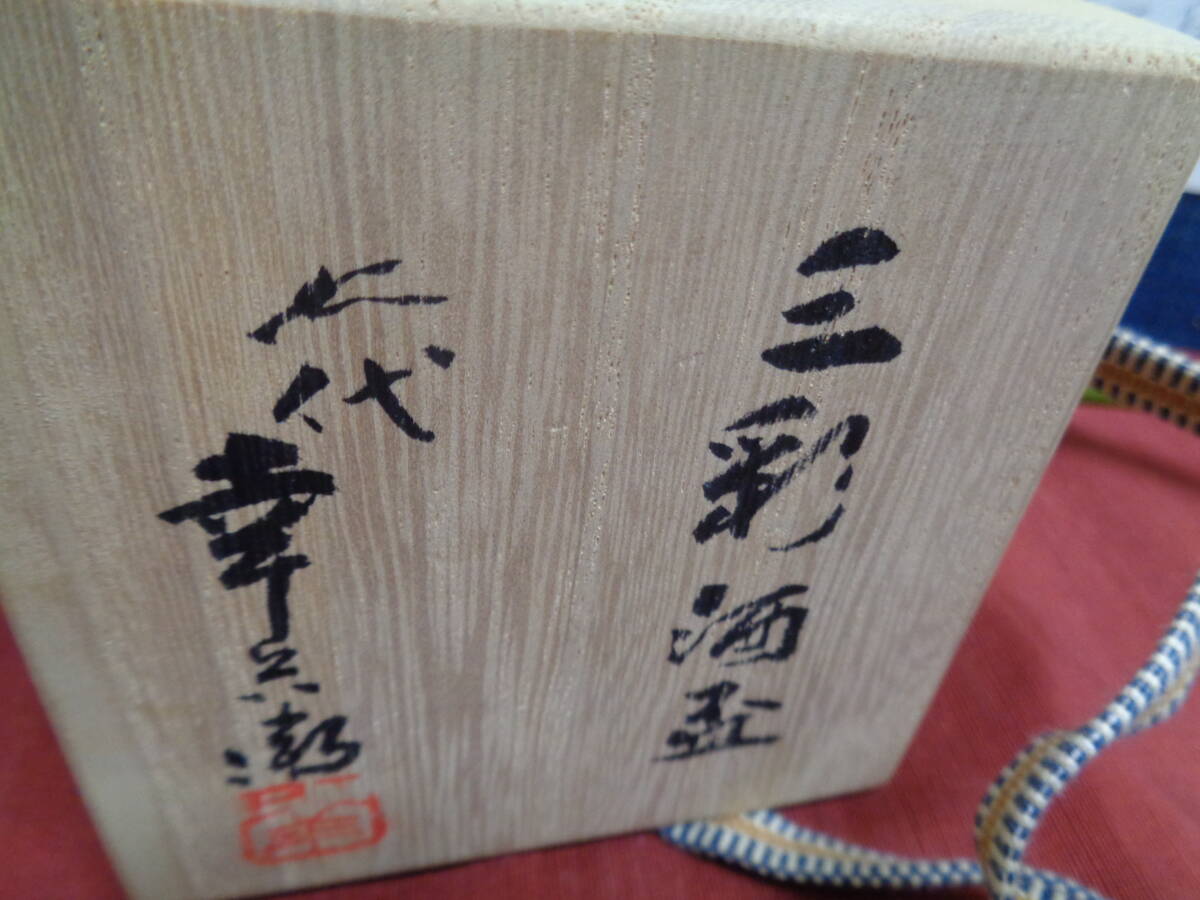 三彩酒盃
七代幸兵衛